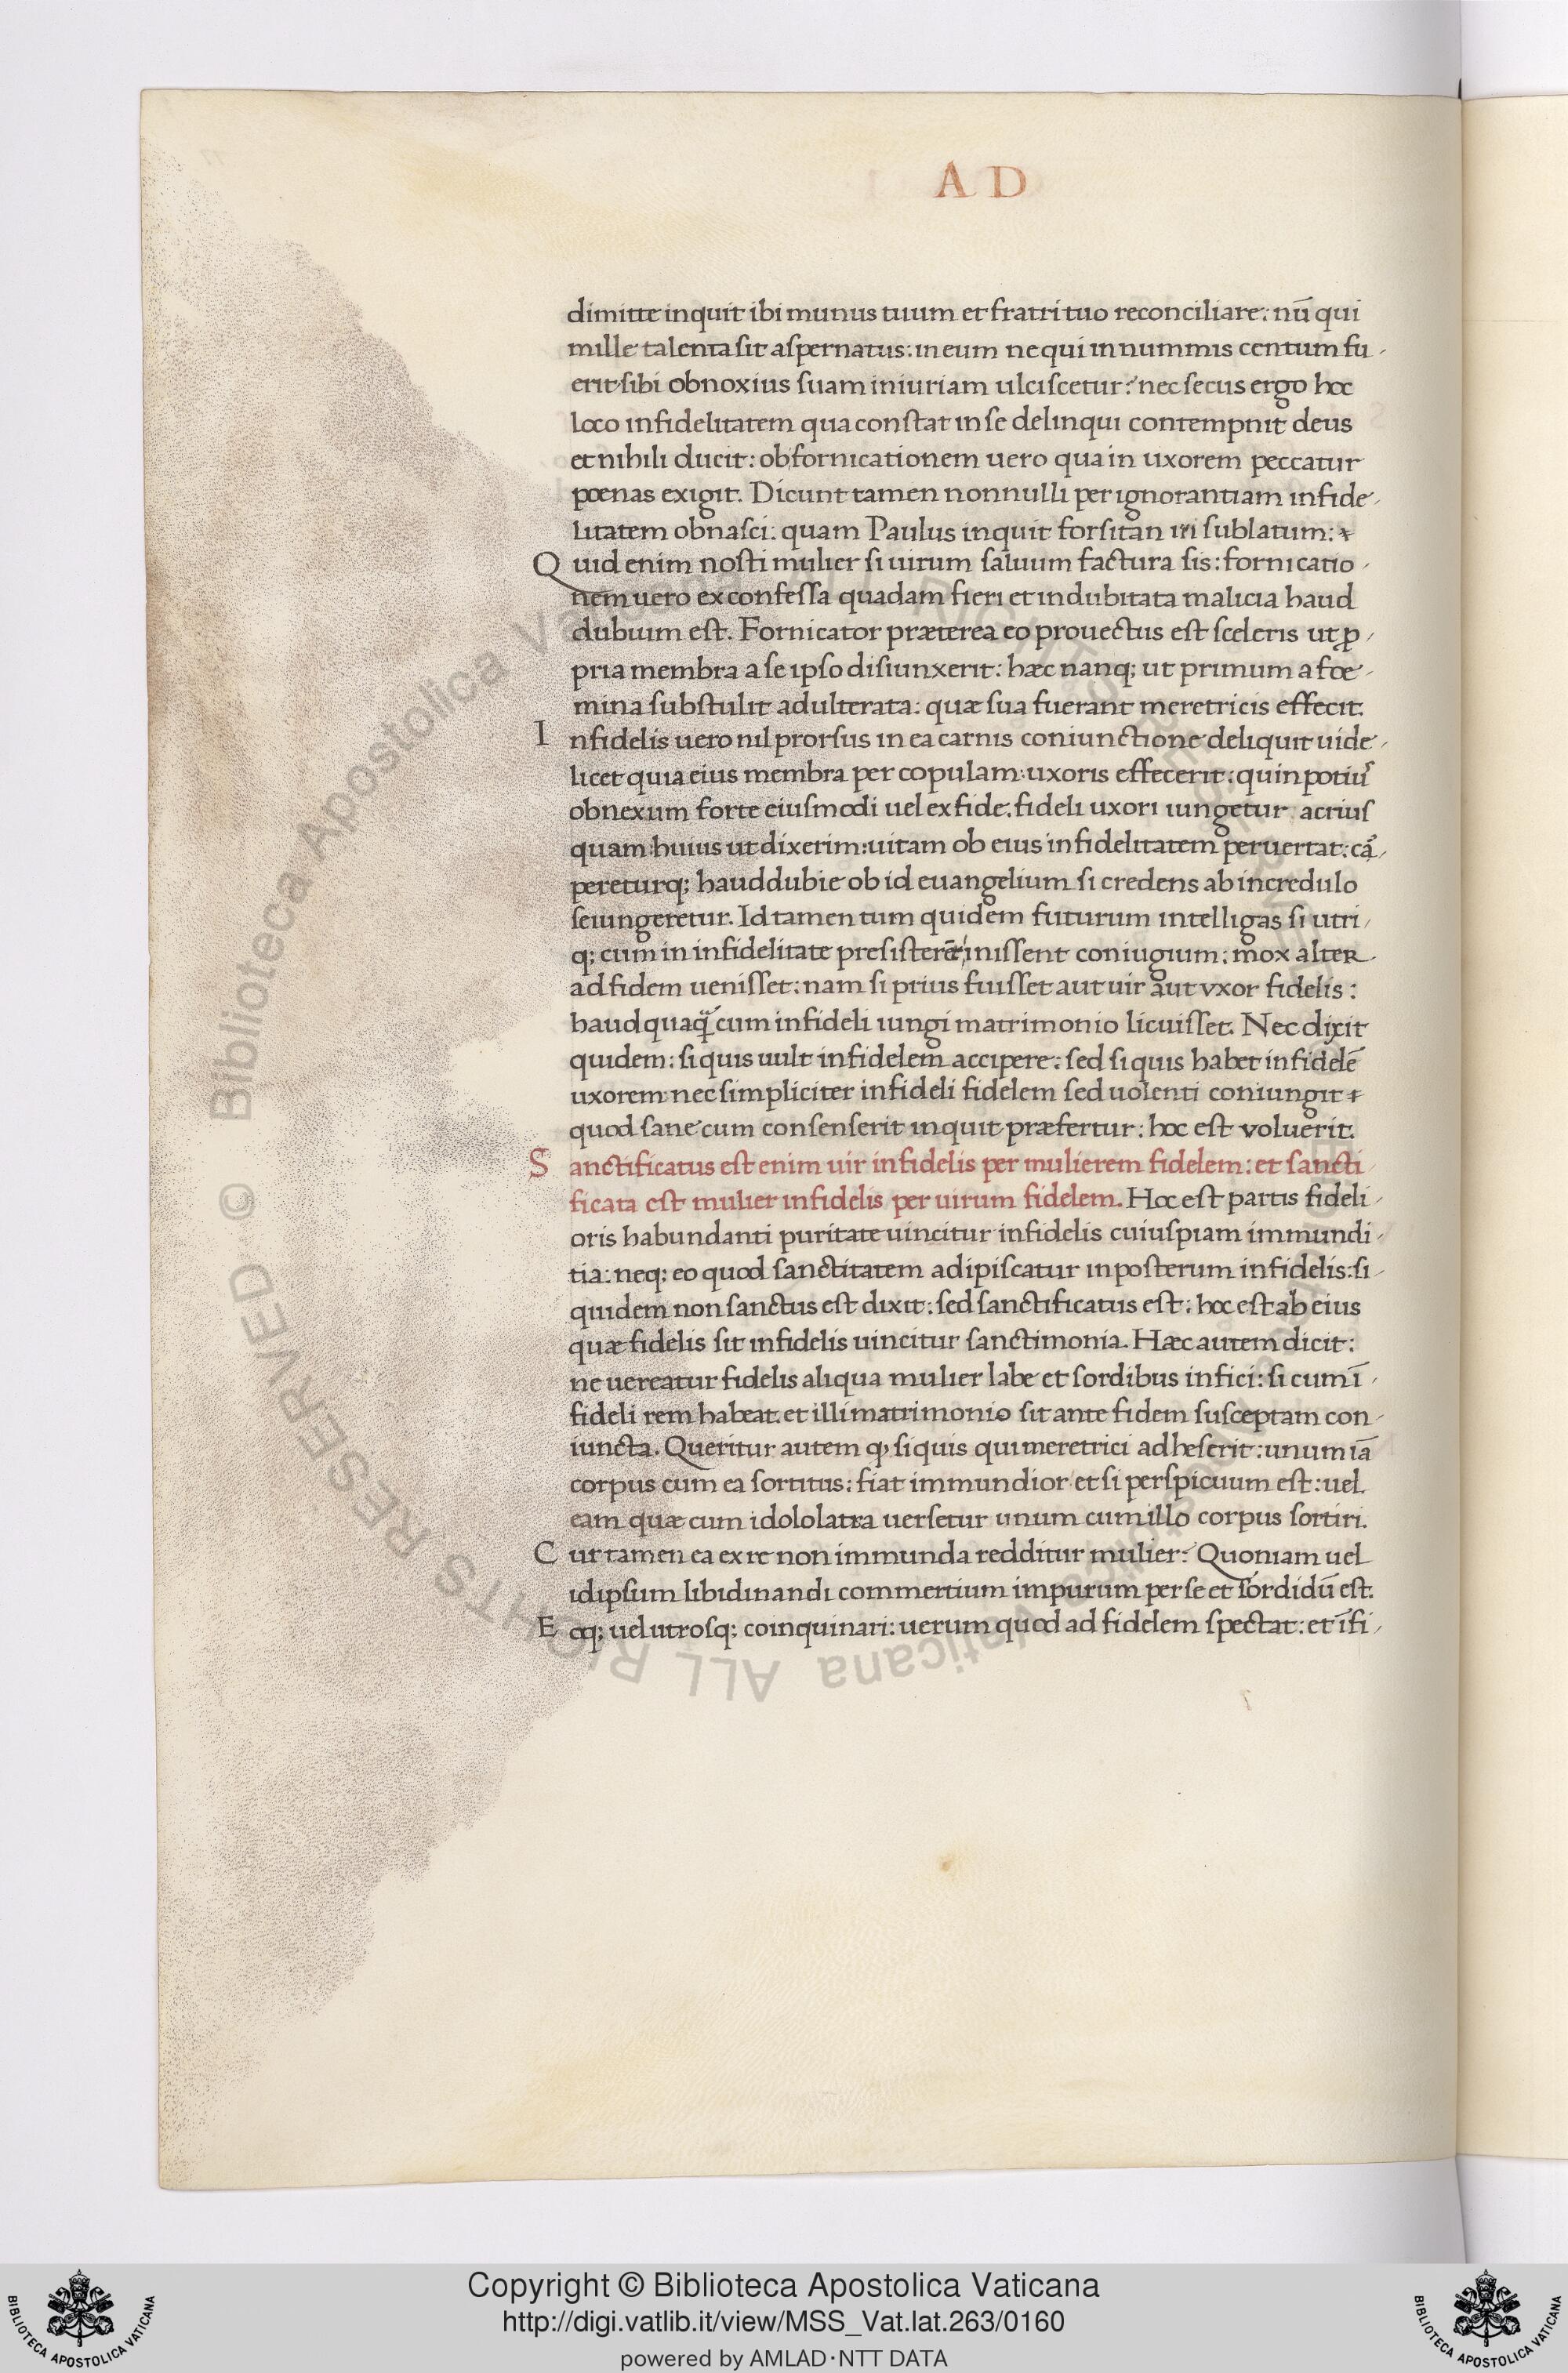 AD
dimitte inquit ibi munus tuum et fratri tuo reconciliare: nū qui
mille talenta sit aspernatus: in eum ne qui in nummis centum fu-
erit sibi obnoxius suam iniuriam ulciscetur? nec secus ergo hoc
loco infidelitatem qua constat in se delinqui contempnit deus
et nihili ducit: ob fornicationem uero qua in uxorem peccatur
poenas exigit. Dicunt tamen nonnulli per ignorantiam infide-
litatem obnasci: quam Paulus inquit forsitan iri sublatum:
Quid enim nosti mulier si uirum saluum factura sis: fornicatio-
nem uero ex confessa quadam fieri et indubitata malicia haud
dubium est. Fornicator præterea eo prouectus est sceleris ut ꝓ-
pria membra a se ipso disiunxerit: hæc nanq; ut primum a foe-
mina substulit adulterata: quæ sua fuerant meretricis effecit.
Infidelis uero nil prorsus in ea carnis coniunctione deliquit uide-
licet quia eius membra per copulam: uxoris effecerit: quin potius
obnexum forte eiusmodi uel ex fide. fideli uxori iungetur acrius
quam: huius ut dixerim: uitam ob eius infidelitatem peruertat:
pereturq; haud dubie ob id euangelium si credens ab incredulo
seiungeretur. Id tamen tum quidem futurum intelligas si utri-
q; cum in infidelitate presisterēt inissent coniugium: mox alter
ad fidem uenisset: nam si prius fuisset aut uir aut vxor fidelis:
haud quaq̄ cum infideli iungi matrimonio licuisset. Nec dixit
quidem: si quis uult infidelem accipere: sed si quis habet infidelē
uxorem nec simpliciter infideli fidelem sed uolenti coniungit
quod sane cum consenserit inquit præfertur: hoc est voluerit.
Sanctificatus est enim uir infidelis per mulierem fidelem: et sancti-
ficata est mulier infidelis per uirum fidelem. Hoc est partis fideli-
oris habundanti puritate uincitur infidelis cuiuspiam immundi-
tia: neq; eo quod sanctitatem adipiscatur inposterum infidelis: si-
quidem non sanctus est dixit: sed sanctificatus est: hoc est ab eius
quæ fidelis sit infidelis uincitur sanctimonia. Hæc autem dicit:
ne uereatur fidelis aliqua mulier labe et sordibus infici: si cum ī-
fideli rem habeat. et illi matrimonio sit ante fidem susceptam con-
iuncta. Queritur autem ꝙ si quis qui meretrici adheserit: unum iā
corpus cum ea sortitus: fiat immundior et si perspicuum est: uel
eam quæ cum idololatra uersetur unum cum illo corpus sortiri.
Cur tamen ea ex re non immunda redditur mulier? Quoniam uel
idipsum libidinandi commertium impurum per se et sordidū est.
Eoq; uel utrosq; coinquinari: uerum quod ad fidelem spectat: et īfi-
© Biblioteca Apostolica Vaticana ALL RIGHTS RESERVED
Copyright © Biblioteca Apostolica Vaticana
http://digi.vatlib.it/view/MSS_Vat.lat.263/0160
powered by AMLAD·NTT DATA
BIBLIOTECA APOSTOLICA VATICANA
BIBLIOTECA APOSTOLICA VATICANA